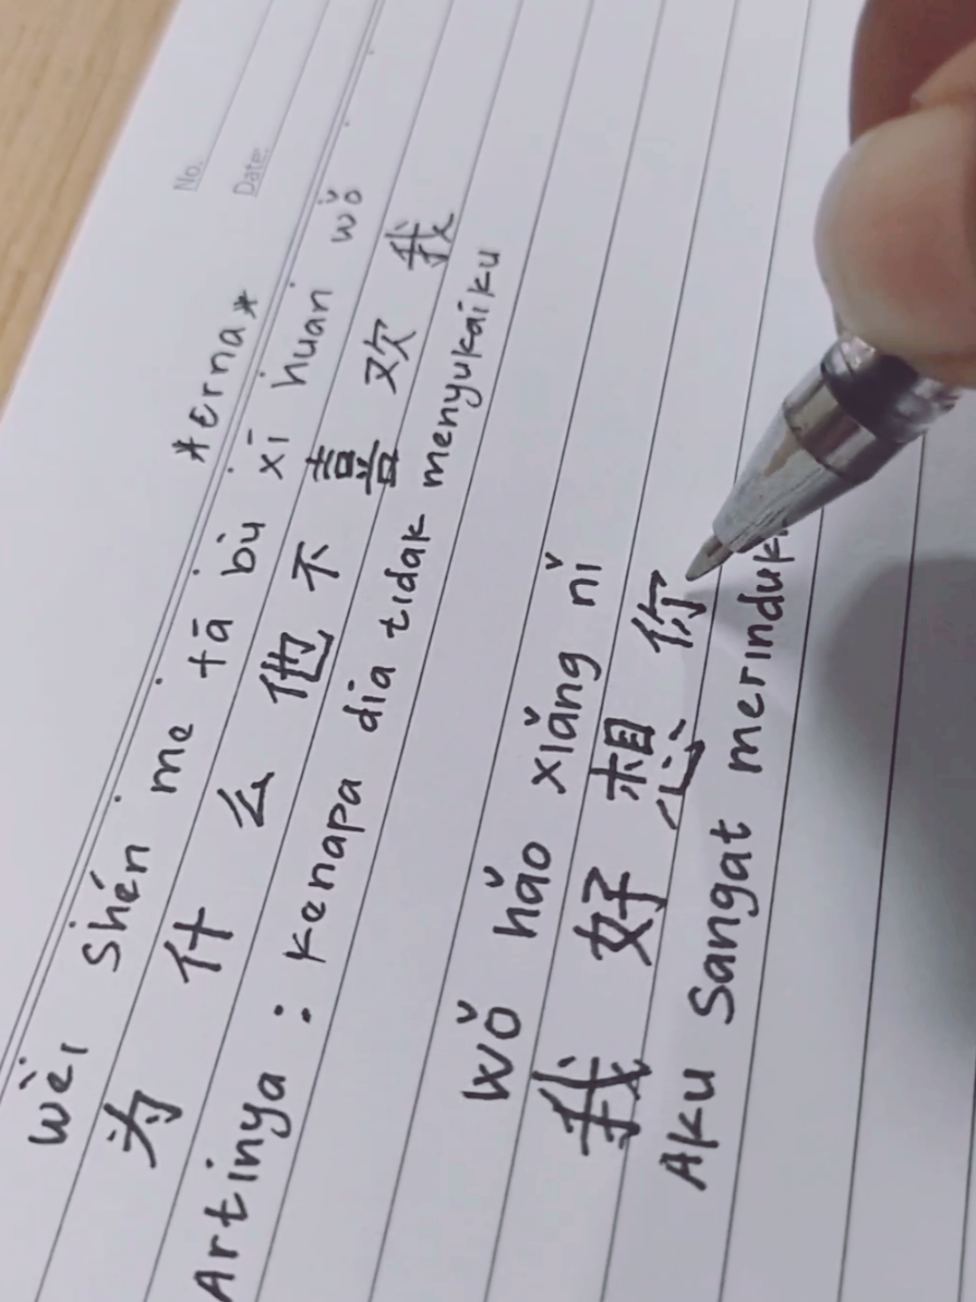 No.
Date:
*Erna*
wèi shén me tā bù xǐ huan wǒ
为 什 么 他 不 喜 欢 我
Artinya : kenapa dia tidak menyukaiku
wǒ hǎo xiǎng nǐ
我 好 想 你
Aku sangat